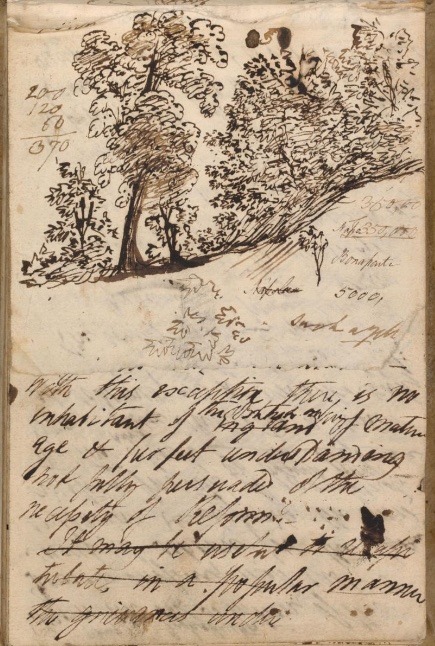 200
120
60
370
350,00
Napa 250,00
Bonaparte
5000,
such a
With this exception there is no
inhabitant of the British
England of mature
age & perfect understanding
not fully persuaded of the
necessity of Reform
It may be useful to
in a popular manner
the grievances under